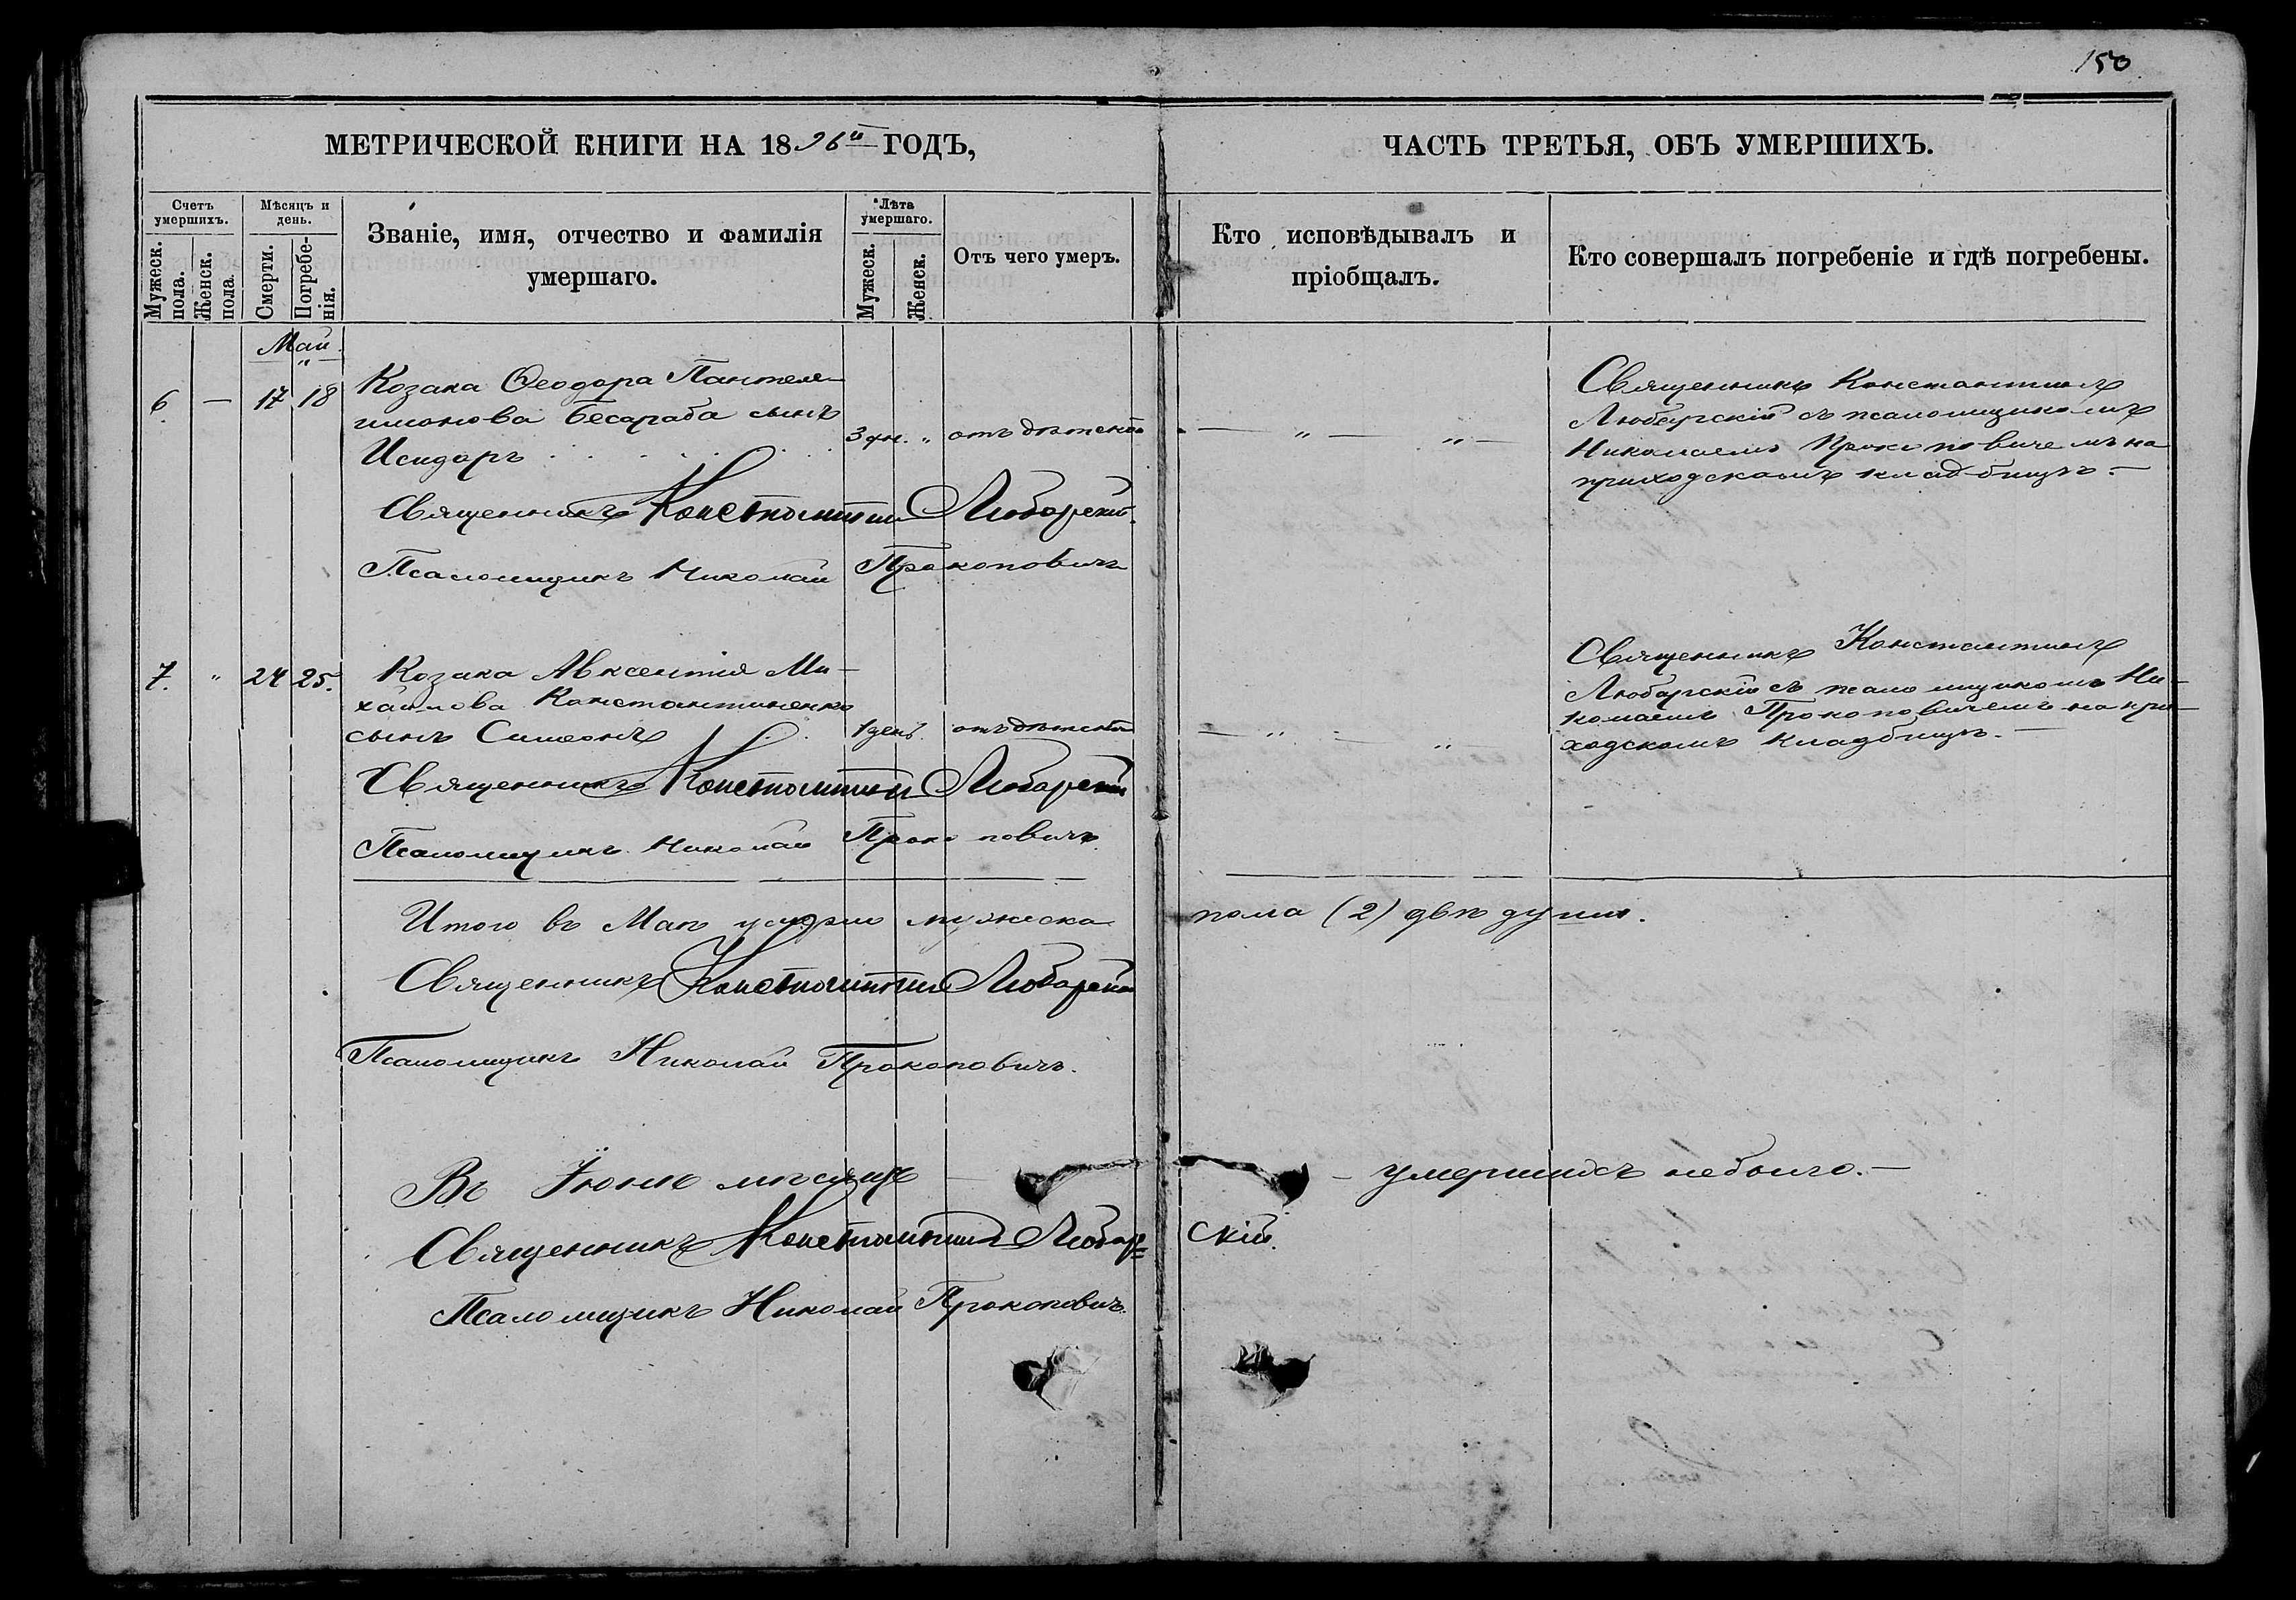 150
МЕТРИЧЕСКОЙ КНИГИ НА 1896й ГОДЪ,
ЧАСТЬ ТРЕТЬЯ, ОБЪ УМЕРШИХЪ.
Счетъ умершихъ.
Мужеск. пола.
Женск. пола.
Мѣсяцъ и день.
Смерти.
Погребенія.
Званіе, имя, отчество и фамилія
умершаго.
Лѣта умершаго.
Мужеск.
Женск.
Отъ чего умеръ.
Кто исповѣдывалъ и
пріобщалъ.
Кто совершалъ погребеніе и гдѣ погребены.
Май
6. — 17 18
Козака Ѳеодора Пантеле-
имонова Бесараба сынъ
Исидоръ . . . . . .
3 дн. „ отъ дѣтской
— „ — „ —
Священникъ Константинъ
Любарскій съ псаломщикомъ
Николаемъ Прокоповичемъ на
приходскомъ кладбищѣ. —
Священникъ Константинъ Любарскій
Псаломщикъ Николай Прокоповичъ
7. „ 24 25.
Козака Авксентія Ми-
хаилова Константиненко
сынъ Симеонъ . .
1 день. отъ дѣтской
— „ — „ —
Священникъ Константинъ
Любарскій съ псаломщикомъ Ни-
колаемъ Прокоповичемъ на при-
ходскомъ кладбищѣ. —
Священникъ Константинъ Любарскій
Псаломщикъ Николай Прокоповичъ.
Итого въ Маѣ умерло мужеска пола (2) двѣ души.
Священникъ Константинъ Любарскій
Псаломщикъ Николай Прокоповичъ.
Въ Іюнѣ мѣсяцѣ — — умершихъ небыло. —
Священникъ Константинъ Любар=скій.
Псаломщикъ Николай Прокоповичъ.